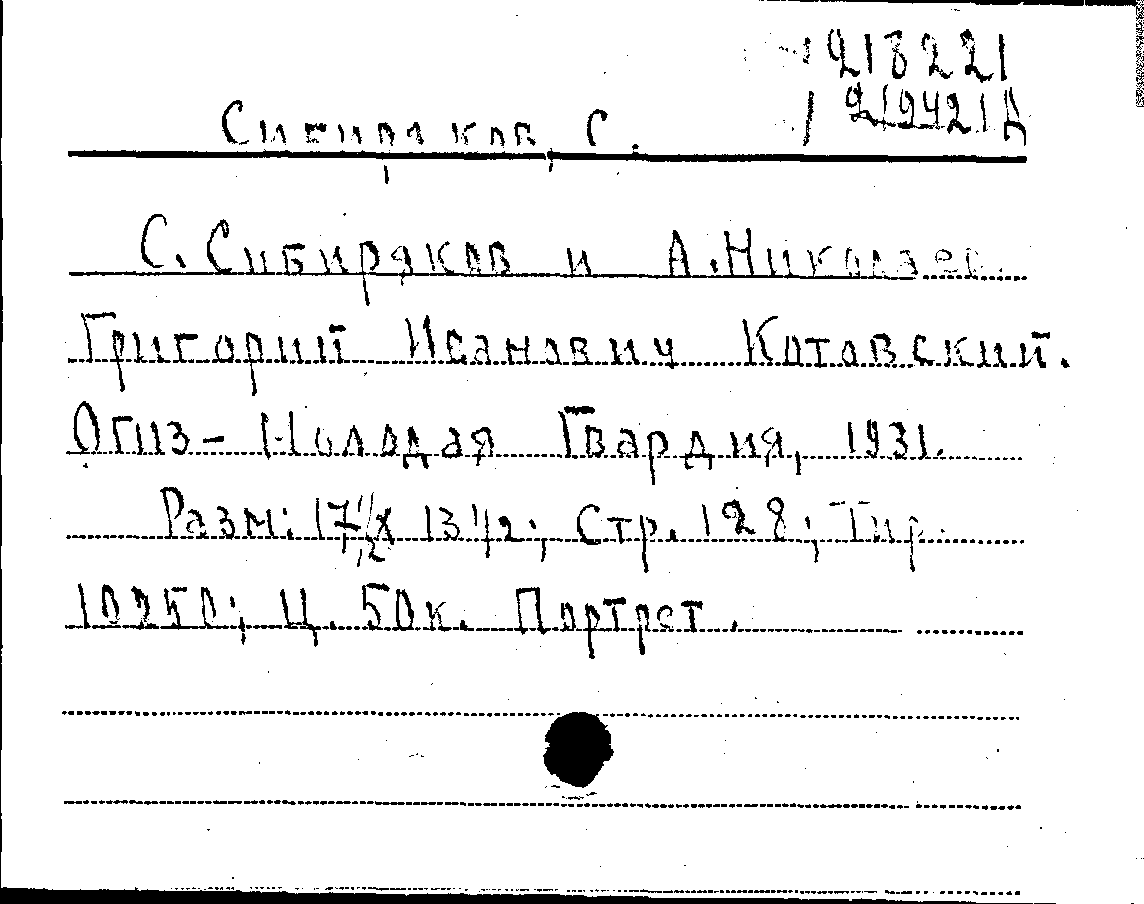 218221
21942 | А
Сибиряков, С.
С. Сибиряков и А. Николаев.
Григорий Исанович Котовский.
Огиз - Молодая Гвардия, 1931.
Разм: 17 1/2 х 13 1/2; Стр. 128; Тир.
10250; Ц. 50к. Портрет.